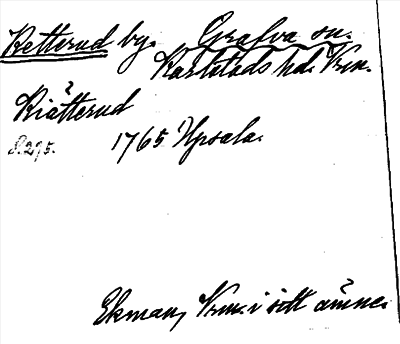 Ketterud by. Grafva sn.
Karlstads hd. Vrm.
Kiätterud
S. 295. 1765. Upsala.
Ekman, Vrm. i sitt ämne.